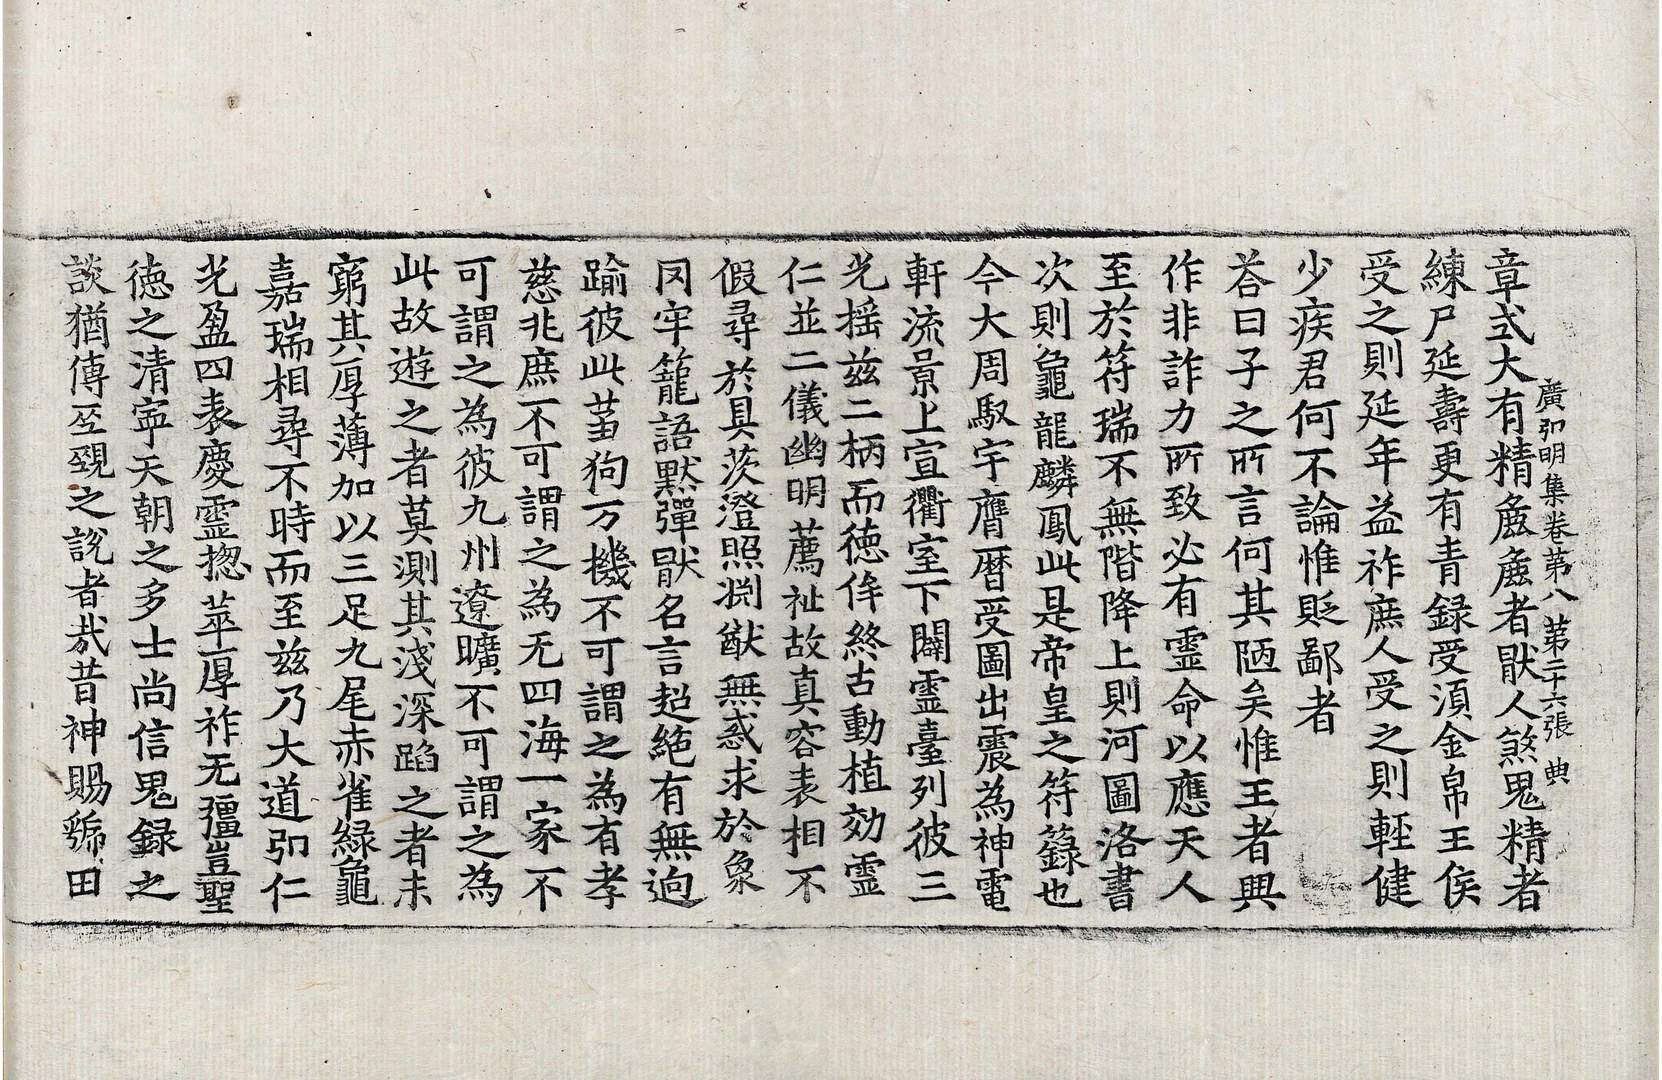 廣弘明集卷第八 第二十六張 典
章式大有精麁麁者猒人煞鬼精者
練尸延壽更有青録受須金帛王侯
受之則延年益祚庶人受之則輕健
少疾君何不論惟貶鄙者
荅曰子之所言何其陋矣惟王者興
作非詐力所致必有靈命以應天人
至於符瑞不無階降上則河圖洛書
次則龜龍麟鳳此是帝皇之符籙也
今大周馭宇膺曆受圖出震為神電
軒流景上宣衢室下闢靈臺列彼三
光揺兹二柄而徳侔終古動植効靈
仁並二儀幽明薦祉故真容表相不
假尋於具茨澄照渊猷無惑求於象
罔牢籠語默彈猒名言超絶有無逈
踰彼此蒭狗万機不可謂之為有孝
慈兆庶不可謂之為无四海一家不
可謂之為彼九州遼曠不可謂之為
此故遊之者莫測其淺深蹈之者未
窮其厚薄加以三足九尾赤雀緑龜
嘉瑞相尋不時而至兹乃大道弘仁
光盈四表慶靈揔萃厚祚无疆豈聖
徳之清寜天朝之多士尚信鬼録之
談猶傳巫覡之説者哉昔神賜虢田